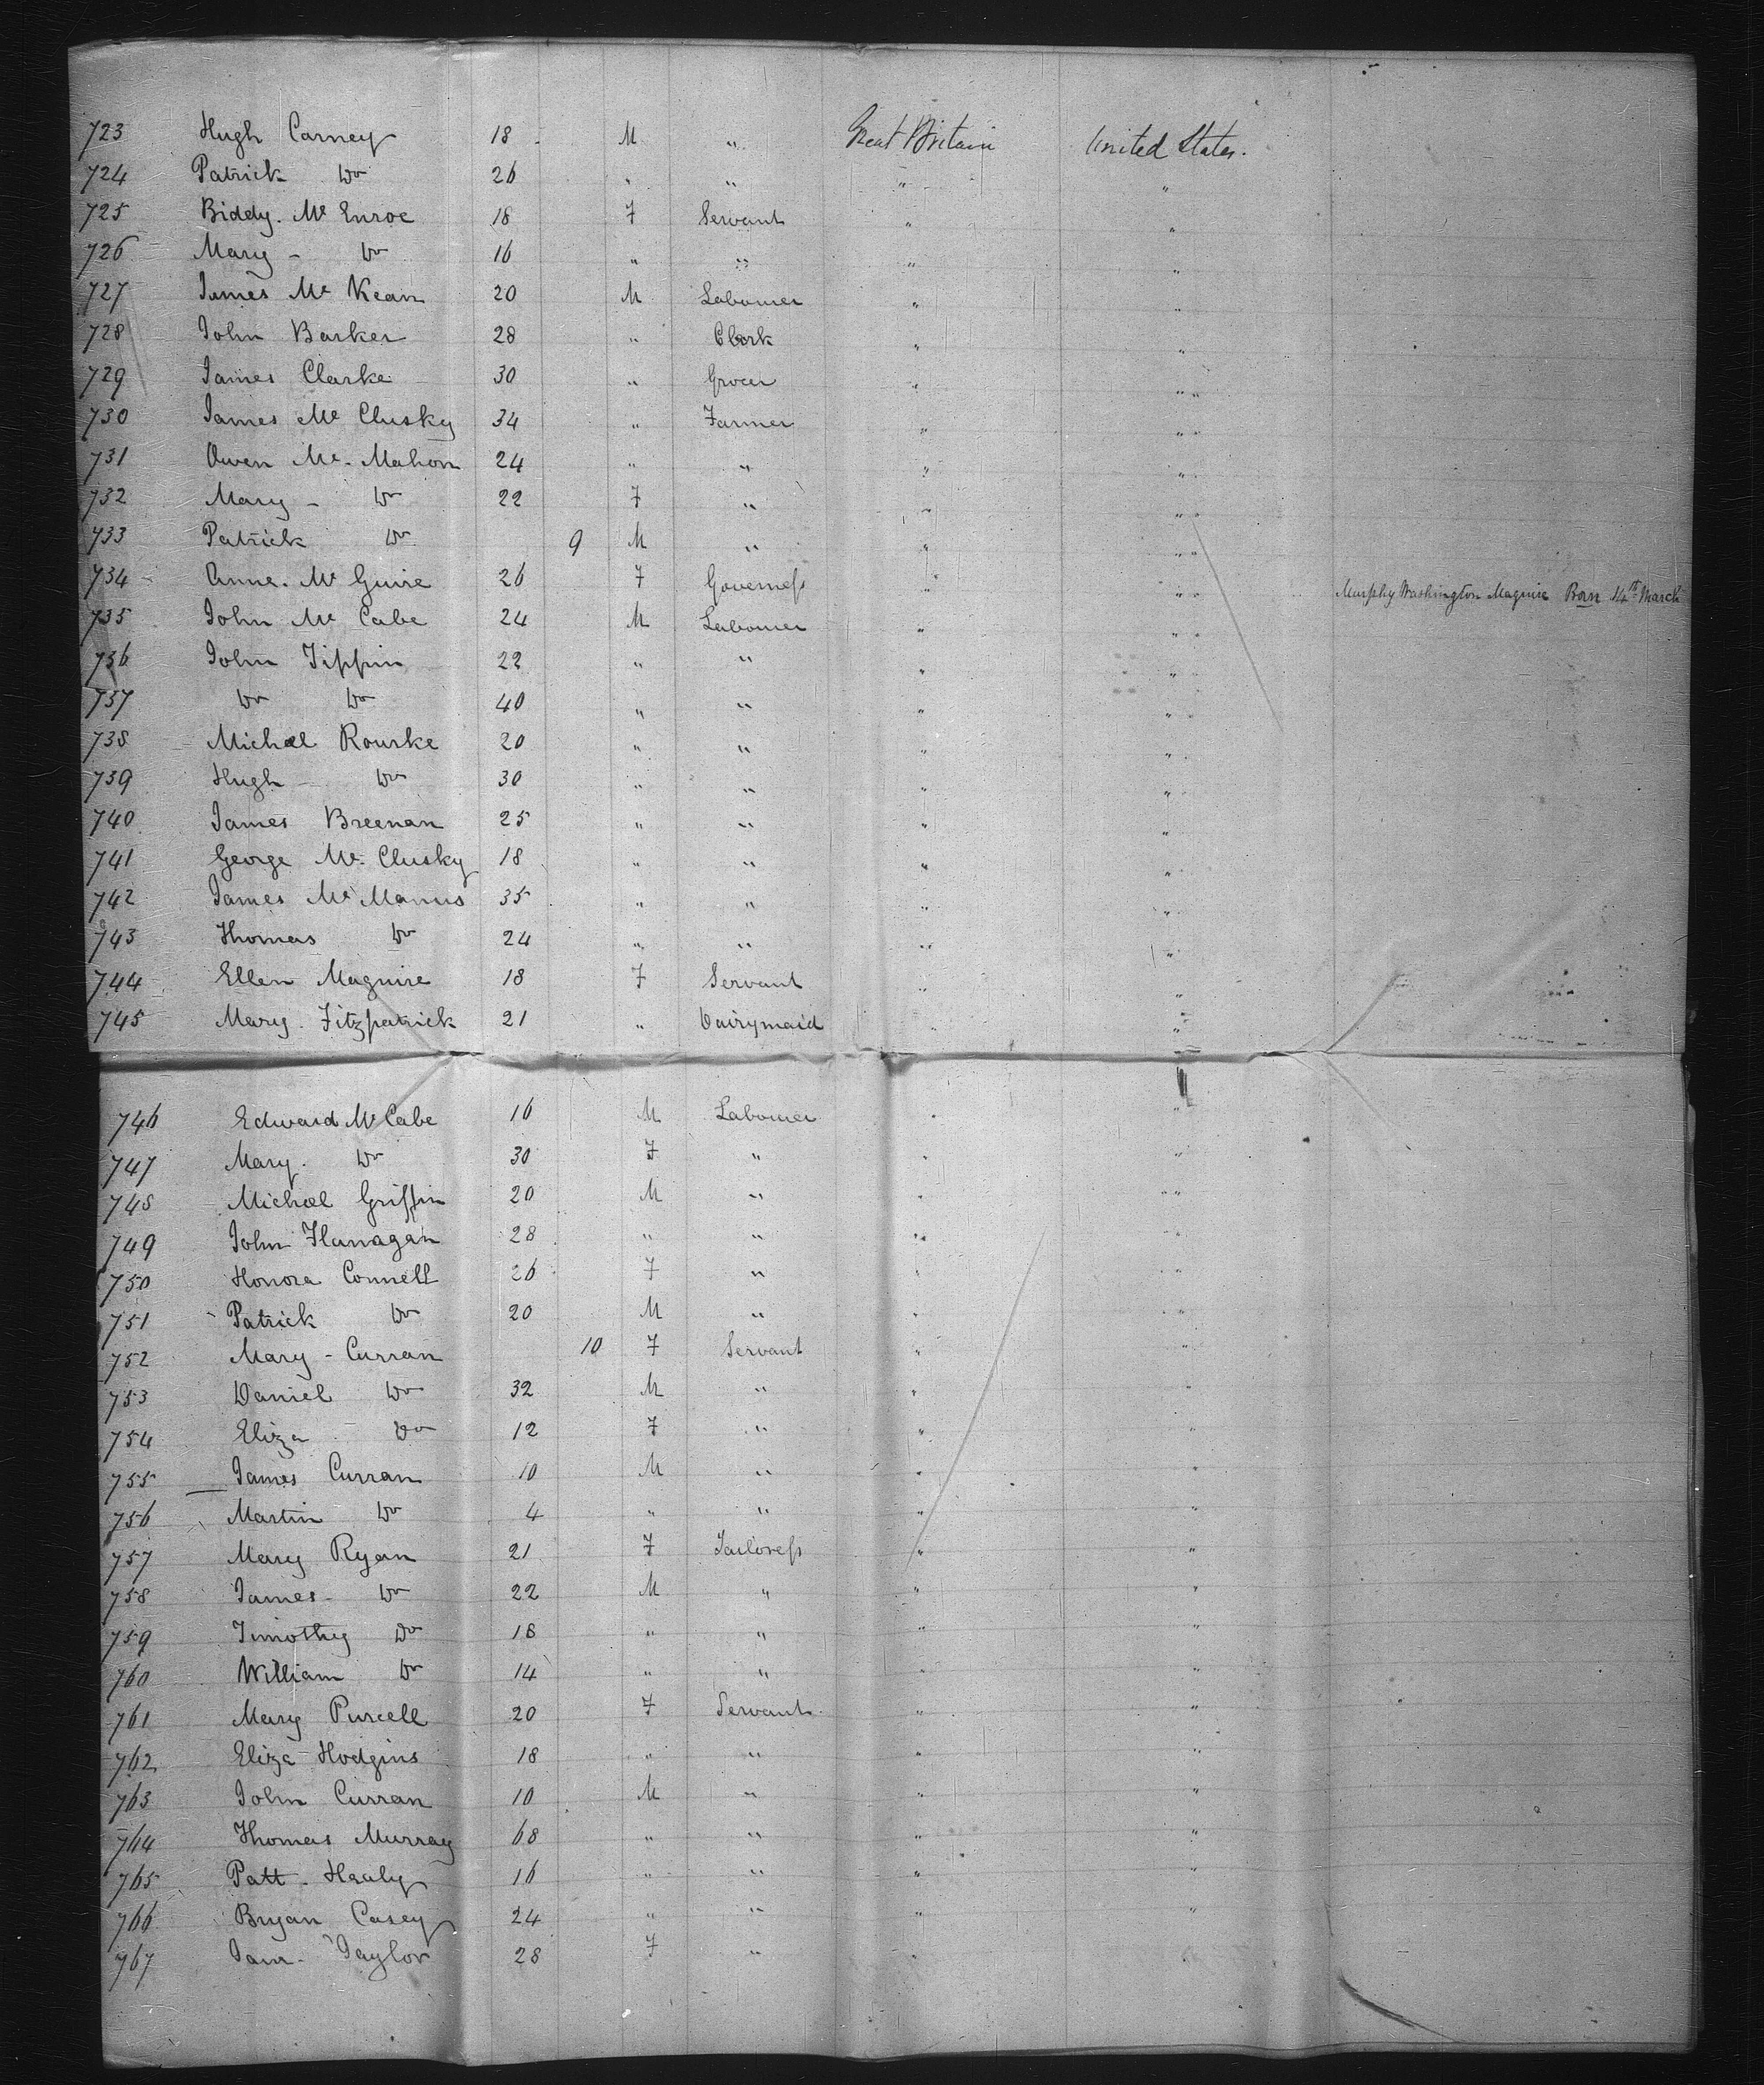 723 Hugh Carney 18 M " Great Britain United States.
724 Patrick Do 26 " " " "
725 Biddy. Mc Enroe 18 F Servant " "
726 Mary - Do 16 " " " "
727 James Mc Kean 20 M Labourer " "
728 John Barker 28 " Clerk " "
729 James Clarke 30 " Grocer " "
730 James Mc Clusky 34 " Farmer " "
731 Owen Mc. Mahon 24 " " " "
732 Mary - Do 22 F " " "
733 Patrick Do 9 M " " "
734 Anne. Mc Guire 26 F Governess " " Murphy Washington Maguire Born 14th March
735 John Mc Cabe 24 M Labourer " "
736 John Tippin 22 " " " "
737 Do Do 40 " " " "
738 Michael Rourke 20 " " " "
739 Hugh - Do 30 " " " "
740 James Breenan 25 " " " "
741 George Mc. Clusky 18 " " " "
742 James Mc Manus 35 " " " "
743 Thomas Do 24 " " " "
744 Ellen Maguire 18 F Servant " "
745 Mary. Fitzpatrick 21 " Dairymaid " "
746 Edward Mc Cabe 16 M Labourer " "
747 Mary. Do 30 F " " "
748 Michael Griffin 20 M " " "
749 John Flanagan 28 " " " "
750 Honora Connell 26 F " " "
751 Patrick Do 20 M " " "
752 Mary - Curran 10 F Servant " "
753 Daniel Do 32 M " " "
754 Eliza Do 12 F " " "
755 James Curran 10 M " " "
756 Martin Do 4 " " " "
757 Mary Ryan 21 F Tailoress " "
758 James - Do 22 M " " "
759 Timothy Do 18 " " " "
760 William Do 14 " " " "
761 Mary Purcell 20 F Servant " "
762 Eliza Hodgins 18 " " " "
763 John Curran 10 M " " "
764 Thomas Murray 68 " " " "
765 Patt - Healy 16 " " " "
766 Bryan Casey 24 " " " "
767 Taylor 28 F " "